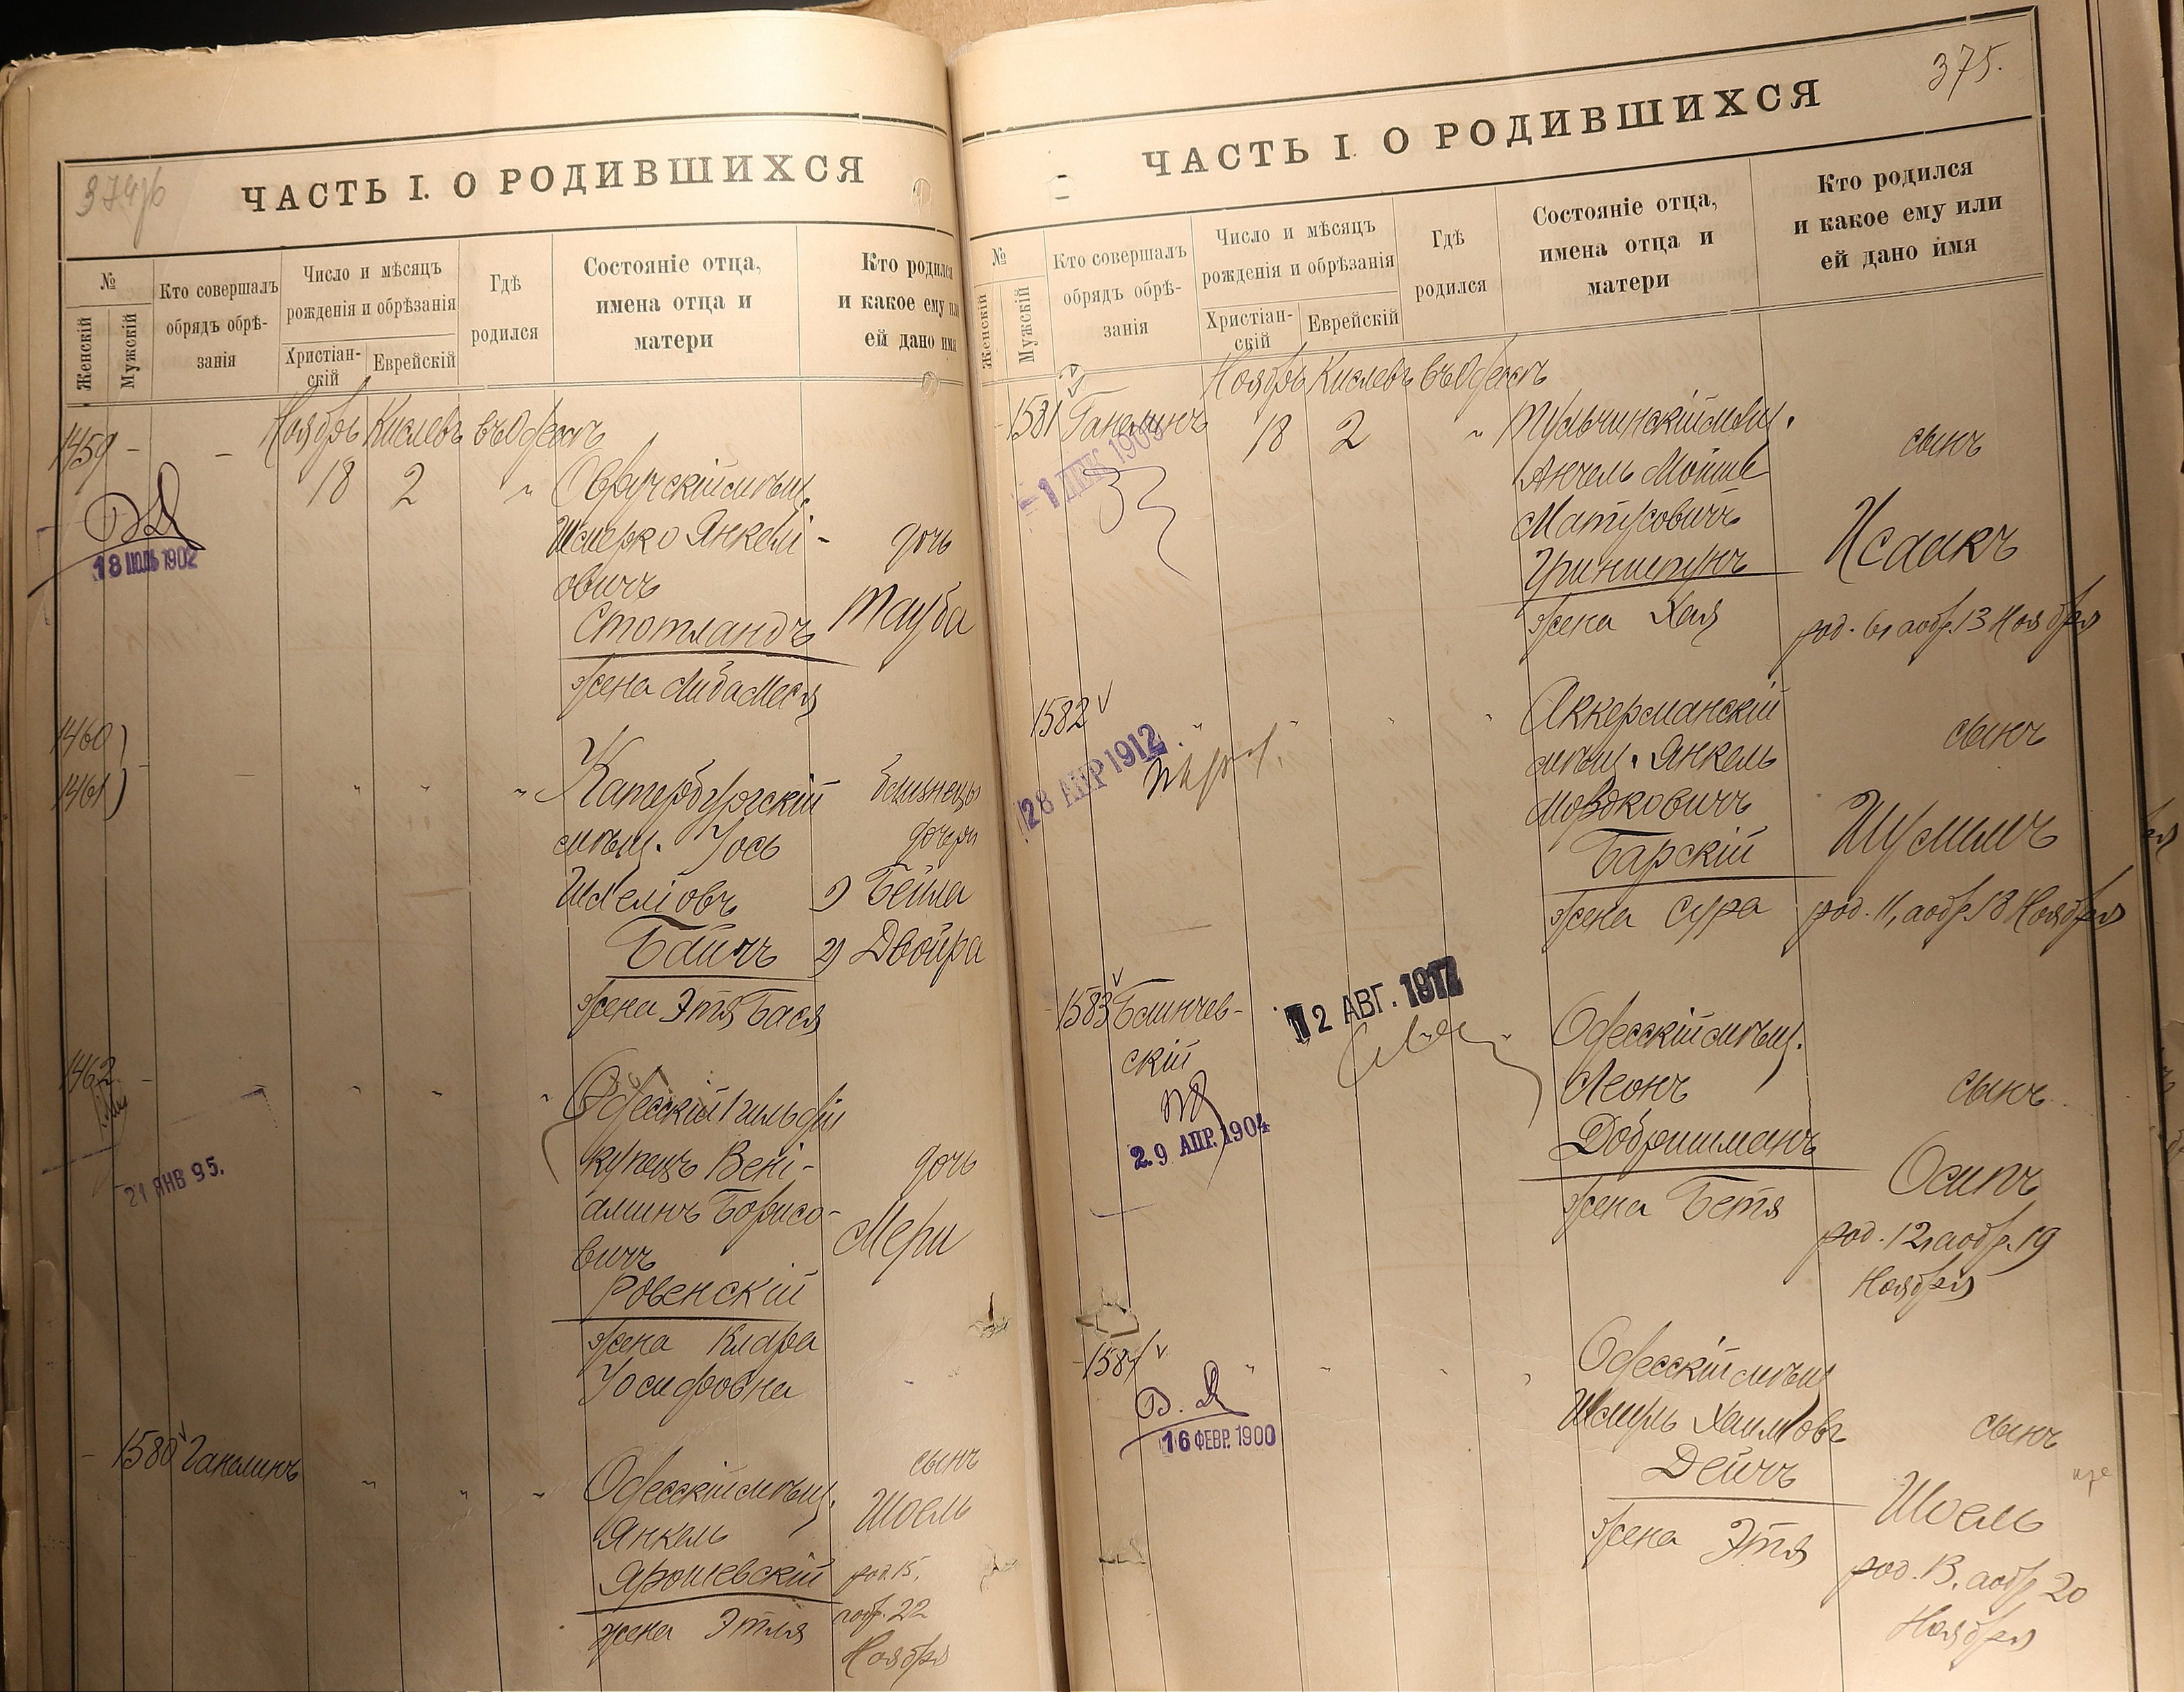 374об
ЧАСТЬ I. О РОДИВШИХСЯ
№
Женскій
Мужскій
Кто совершалъ
обрядъ обрѣ-
занія
Число и мѣсяцъ
рожденія и обрѣзанія
Христіан-
скій
Еврейскій
Гдѣ
родился
Состояніе отца,
имена отца и
матери
Кто родился
и какое ему или
ей дано имя
1459 - - Ноябрь Кислевъ въ Одессѣ
18 2 " Овручскій мѣщ.
Шмерко Янкелі-
овичъ дочь
Стотландъ Тауба
жена Либа Меся
18 ІЮЛЬ 1902
1460)
1461) - - " " " Катербургскій близнецы
мѣщ. Іось дочери
Шмеліовъ 1) Бейла
Байчъ 2) Двойра
жена Этя Бася
1462 - " " " Одесскій 1 гильдіи
купецъ Вені- дочь
аминъ Борисо-
вичъ Мери
Ровенскій
жена Клара
Іосифовна
21 ЯНВ 95.
- 1580 Ганелинъ " " " Одесскій мѣщ. сынъ
Янкель Шоель
Ярошевскій род. 15,
жена Этля аобр. 22
Ноября
375.
ЧАСТЬ I. О РОДИВШИХСЯ
№
Женскій
Мужскій
Кто совершалъ
обрядъ обрѣ-
занія
Число и мѣсяцъ
рожденія и обрѣзанія
Христіан-
скій
Еврейскій
Гдѣ
родился
Состояніе отца,
имена отца и
матери
Кто родился
и какое ему или
ей дано имя
Ноябрь Кислевъ въ Одессѣ
- 1581 Ганелинъ 18 2 " Тульчинскій мѣщ. сынъ
Анчель Мойше
Матусовичъ Исаакъ
Гринштунъ
жена Хая род. 6, аобр. 13 Ноября
- 1 ДЕК 190
1582 " " " " Аккерманскій сынъ
мѣщ. Янкель
Мордковичъ Шумилъ
Барскій
жена Сура род. 11, аобр. 18 Ноября
28 АПР 1912
- 1583 Балинчев-
скій " Одесскій мѣщ.
Леонъ сынъ
Добришманъ Осипъ
жена Бетя род. 12, аобр. 19
Ноября
12 АВГ. 1912
29 АПР. 1904
- 1584 " " " " Одесскій мѣщ
Шмуль Хаимовъ сынъ
Дейчъ Шоель
жена Этя род. 13, аобр 20
Ноября
В. Д
16 ФЕВР. 1900